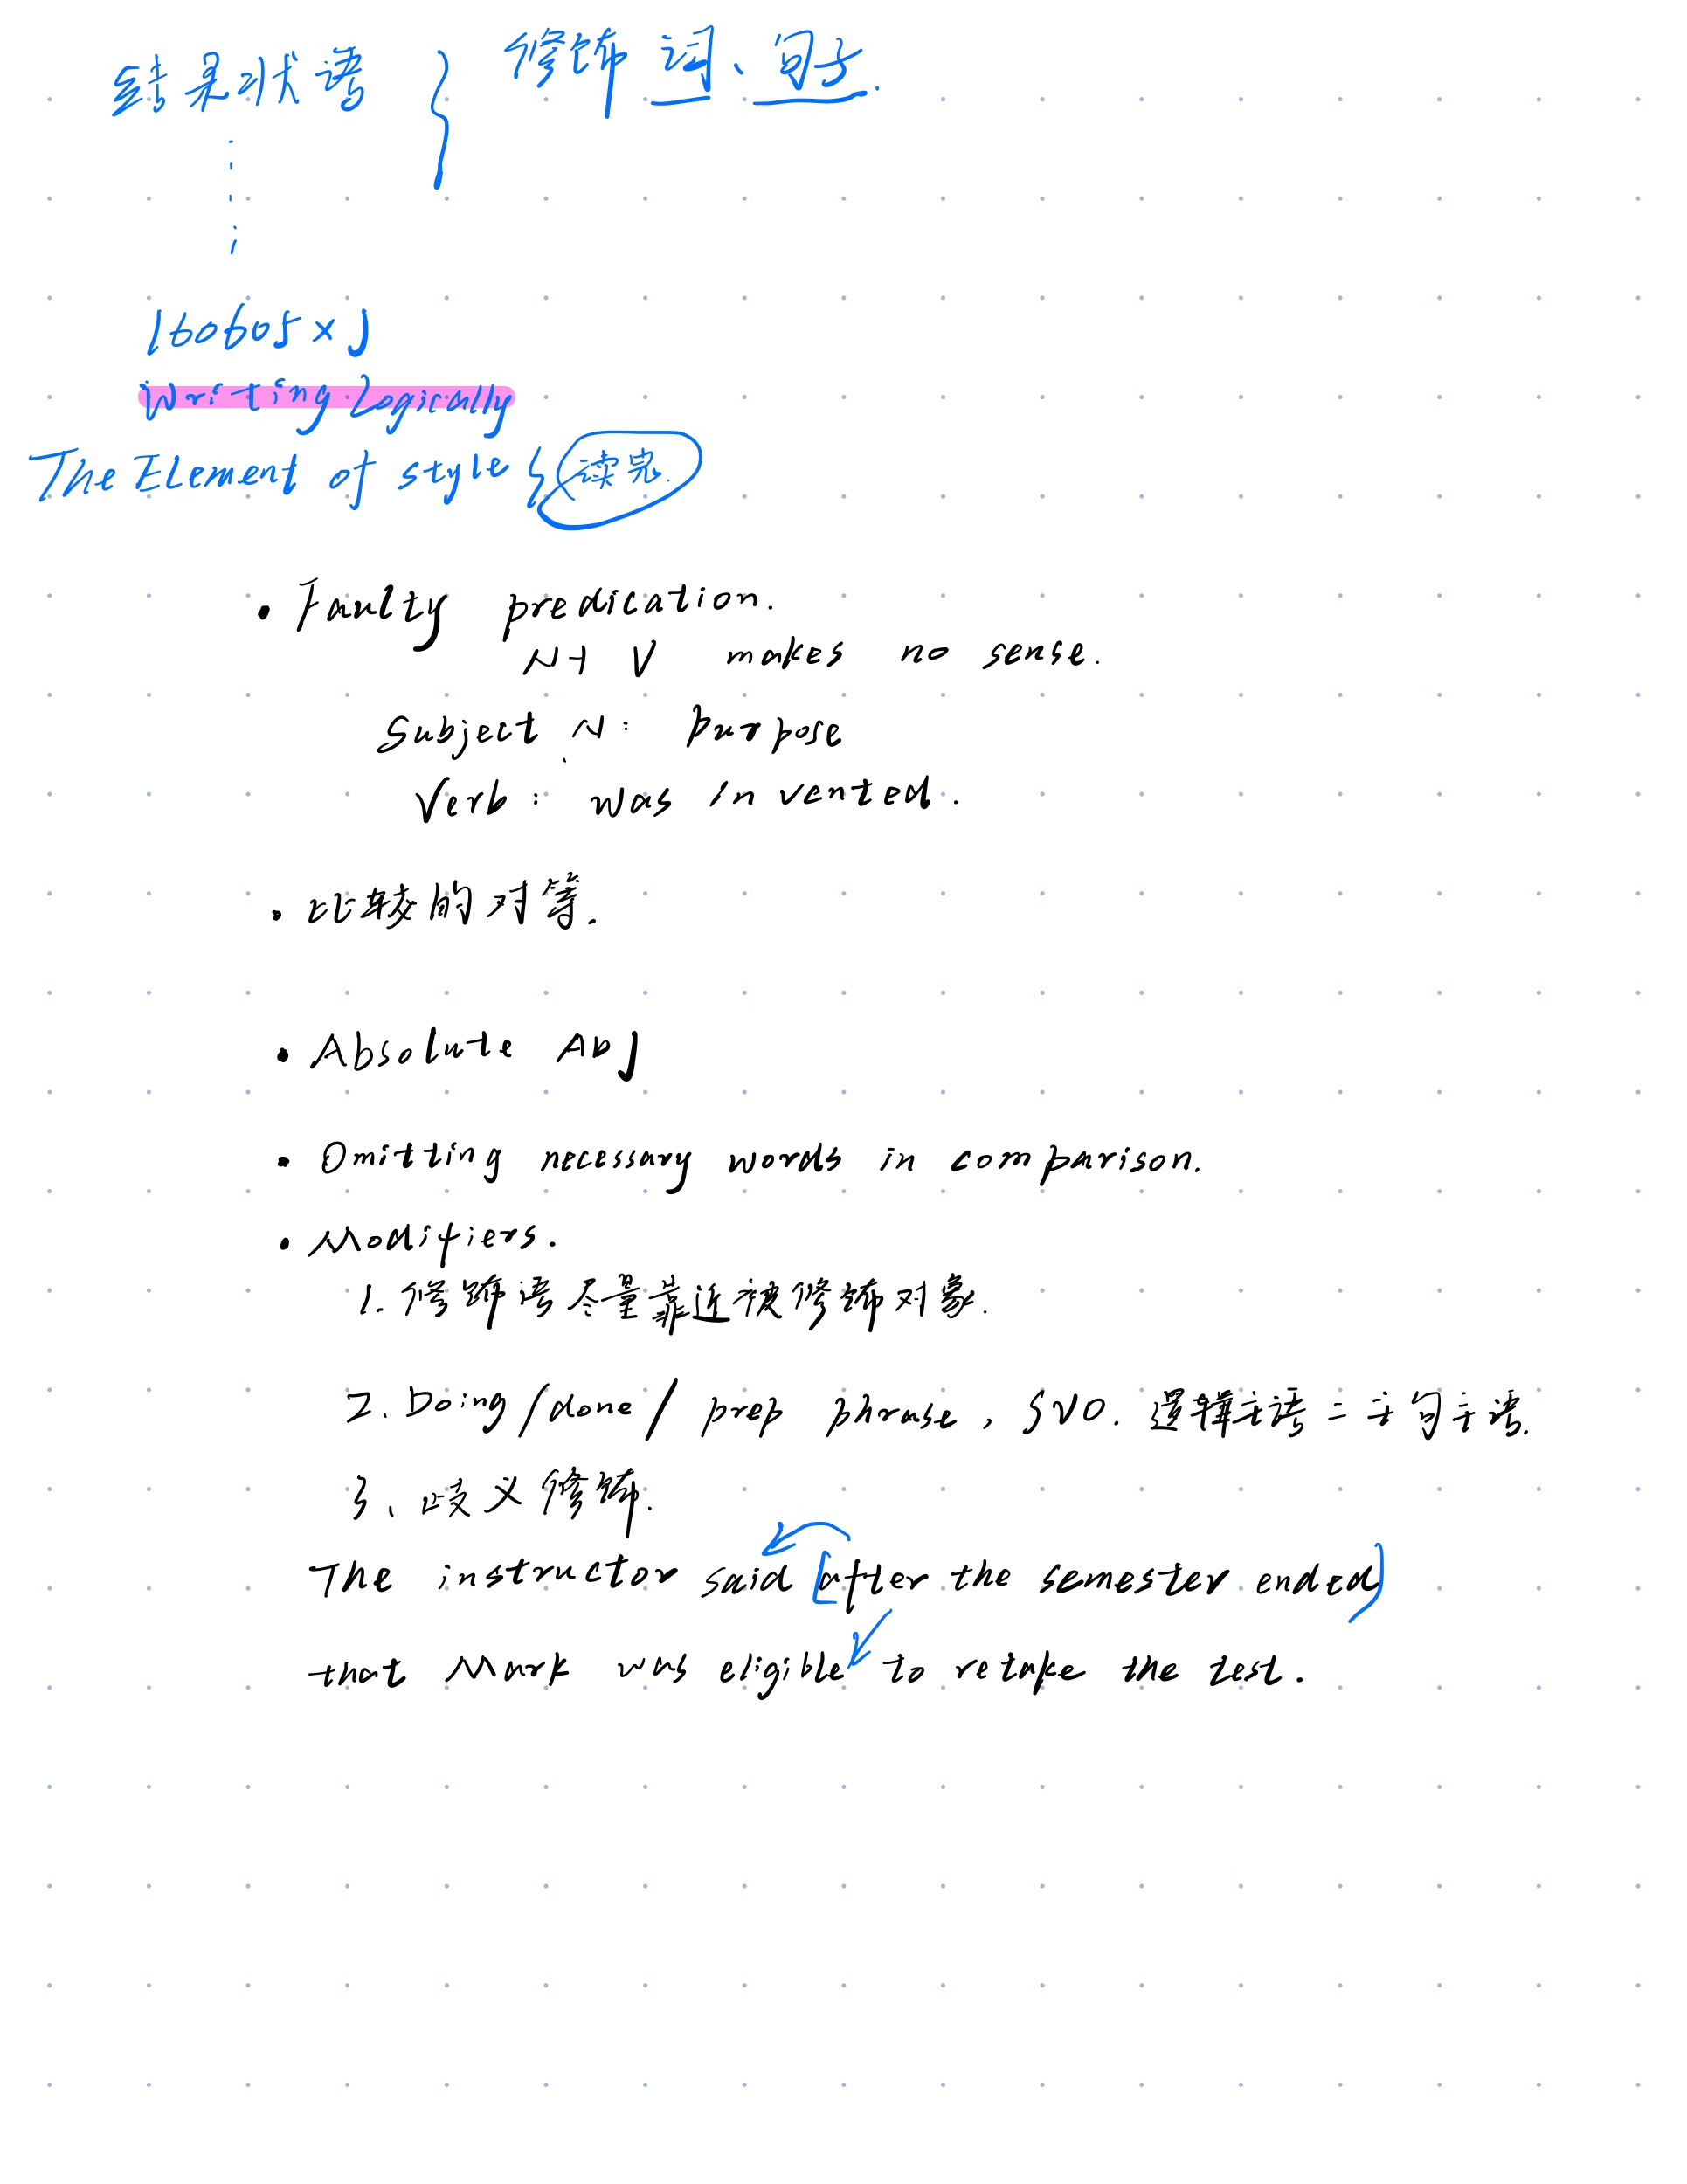 结果状语 { 修饰 词、句子.
160605xJ
Writing Logically
The Element of style { 读完.
• Faulty predication.
N+V makes no sense.
Subject N: purpose
Verb: was invented.
• 比较的对等.
• Absolute ADJ
• Omitting necessary words in comparison.
• Modifiers.
1. 修饰语尽量靠近被修饰对象.
2. Doing/done/prep phrase, SVO. 逻辑主语=主句主语.
3、歧义修饰.
The instructor said [after the semester ended]
that Mark was eligible to retake the test.